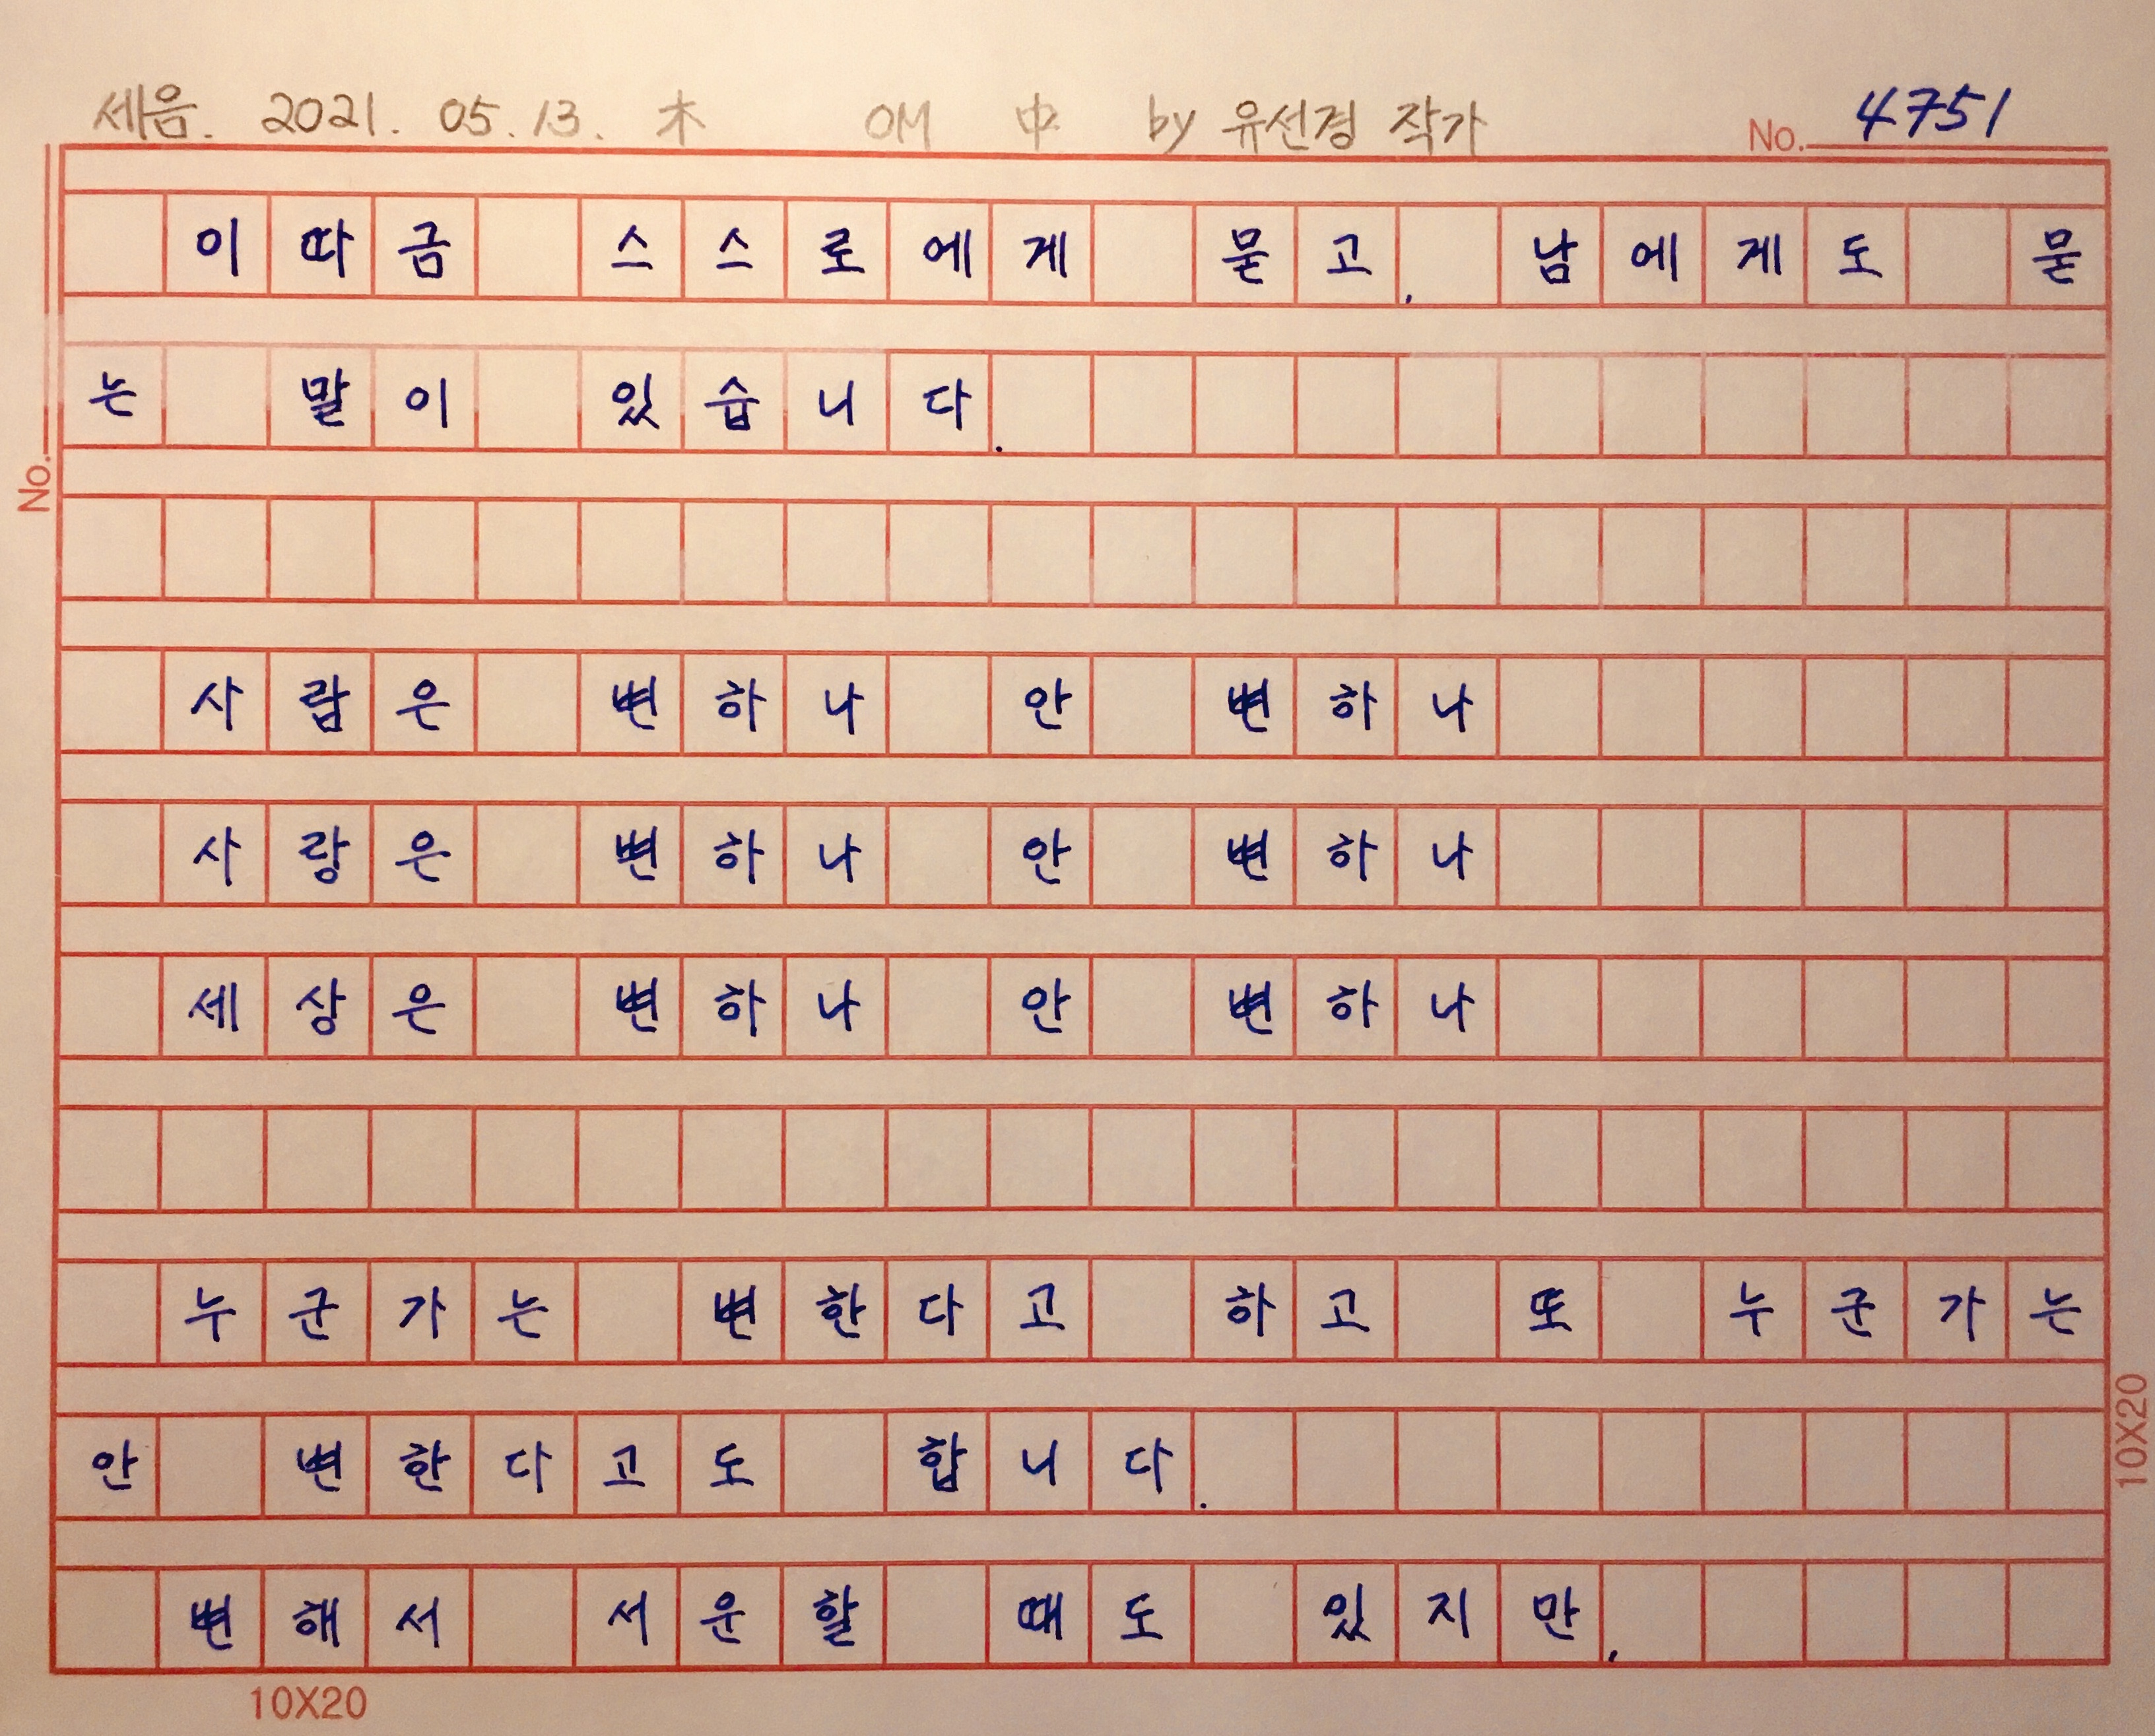 세음. 2021. 05. 13. 木 OM 中 by 유선경 작가 No. 4751
이따금 스스로에게 묻고, 남에게도 묻
는 말이 있습니다.
No.
사람은 변하나 안 변하나
사랑은 변하나 안 변하나
세상은 변하나 안 변하나
누군가는 변한다고 하고 또 누군가는
안 변한다고도 합니다.
10X20
변해서 서운할 때도 있지만,
10X20